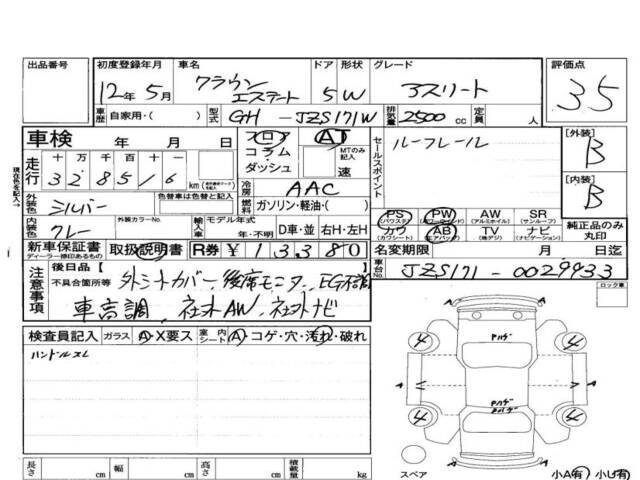 出品番号 初度登録年月 車名 ドア 形状 グレード 評価点
12年 5月 クラウン エステート 5 W アスリート 3.5
車歴 自家用・( ) 型式 GH - JZS171W 排気量 2500 cc 定員 人
車検 年 月 日 フロア コラム ダッシュ AT MTのみ記入 速 セールスポイント ルーフレール [外装] B
走行 十 万 千 百 十 一 km
3 2 8 5 1 6 冷房 AAC [内装] B
現在色を記入→ 外装色 シルバー 色替車は色替と記入 燃料 ガソリン・軽油・( )
内装色 グレー 外装カラーNo. 輸入車 モデル年式 年・不明 D車・並 右H・左H
PS (パワステ) PW AW (アルミホイル) SR (サンルーフ) 純正品のみ丸印
カワ (カワシート) AB (エアバック) TV (地デジ) ナビ (ナビゲーション)
新車保証書 ディーラー捺印あるもの 取扱説明書 R券 ¥ 13380 名変期限 月 日迄
注意事項 後日品 [ ] 車台No. JZS171 - 0029933
不具合箇所等 外シートカバー、後席モニタ、EG不調
車高調、社外AW、社外ナビ ロック車
検査員記入 ガラス A・X要ス 室内 シート A・コゲ・穴・汚れ・破れ
ハンドルスレ
Aハゲ
4 4
A A
Aハゲ
Aハゲ
4 4
スペア
小A有 小U有
長さ cm 幅 cm 高さ cm 積載量 kg